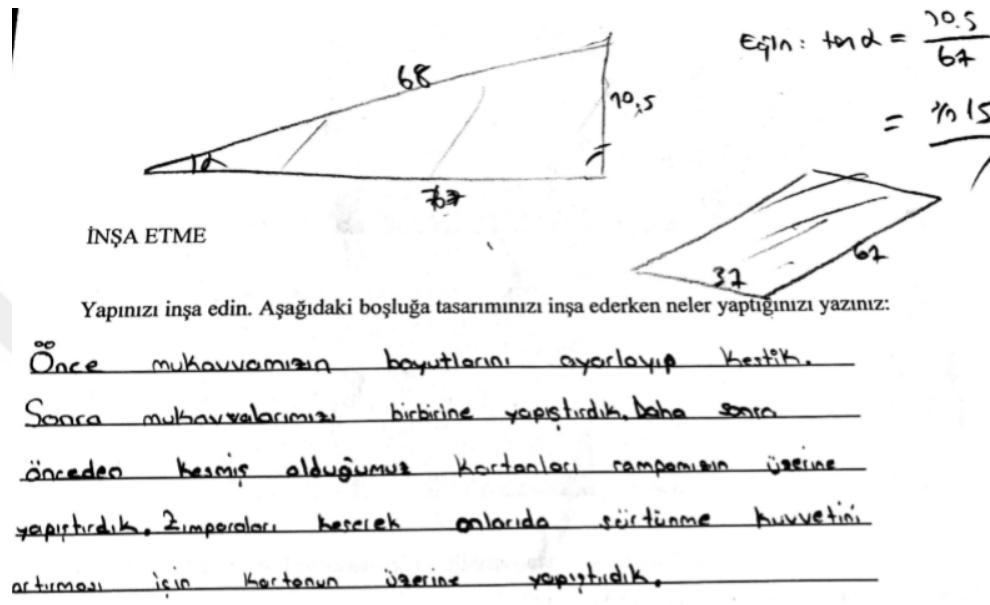 68
10,5
67
Eğim: tan α = 10.5 / 67
= % 15
İNŞA ETME
37
67
Yapınızı inşa edin. Aşağıdaki boşluğa tasarımınızı inşa ederken neler yaptığınızı yazınız:
Önce mukavvamızın boyutlarını ayarlayıp kestik.
Sonra mukavvalarımızı birbirine yapıştırdık. Daha sonra
önceden kesmiş olduğumuz kartonları rampamızın üzerine
yapıştırdık. Zımparaları keserek onlarıda sürtünme kuvvetini
artırması için kartonun üzerine yapıştırdık.